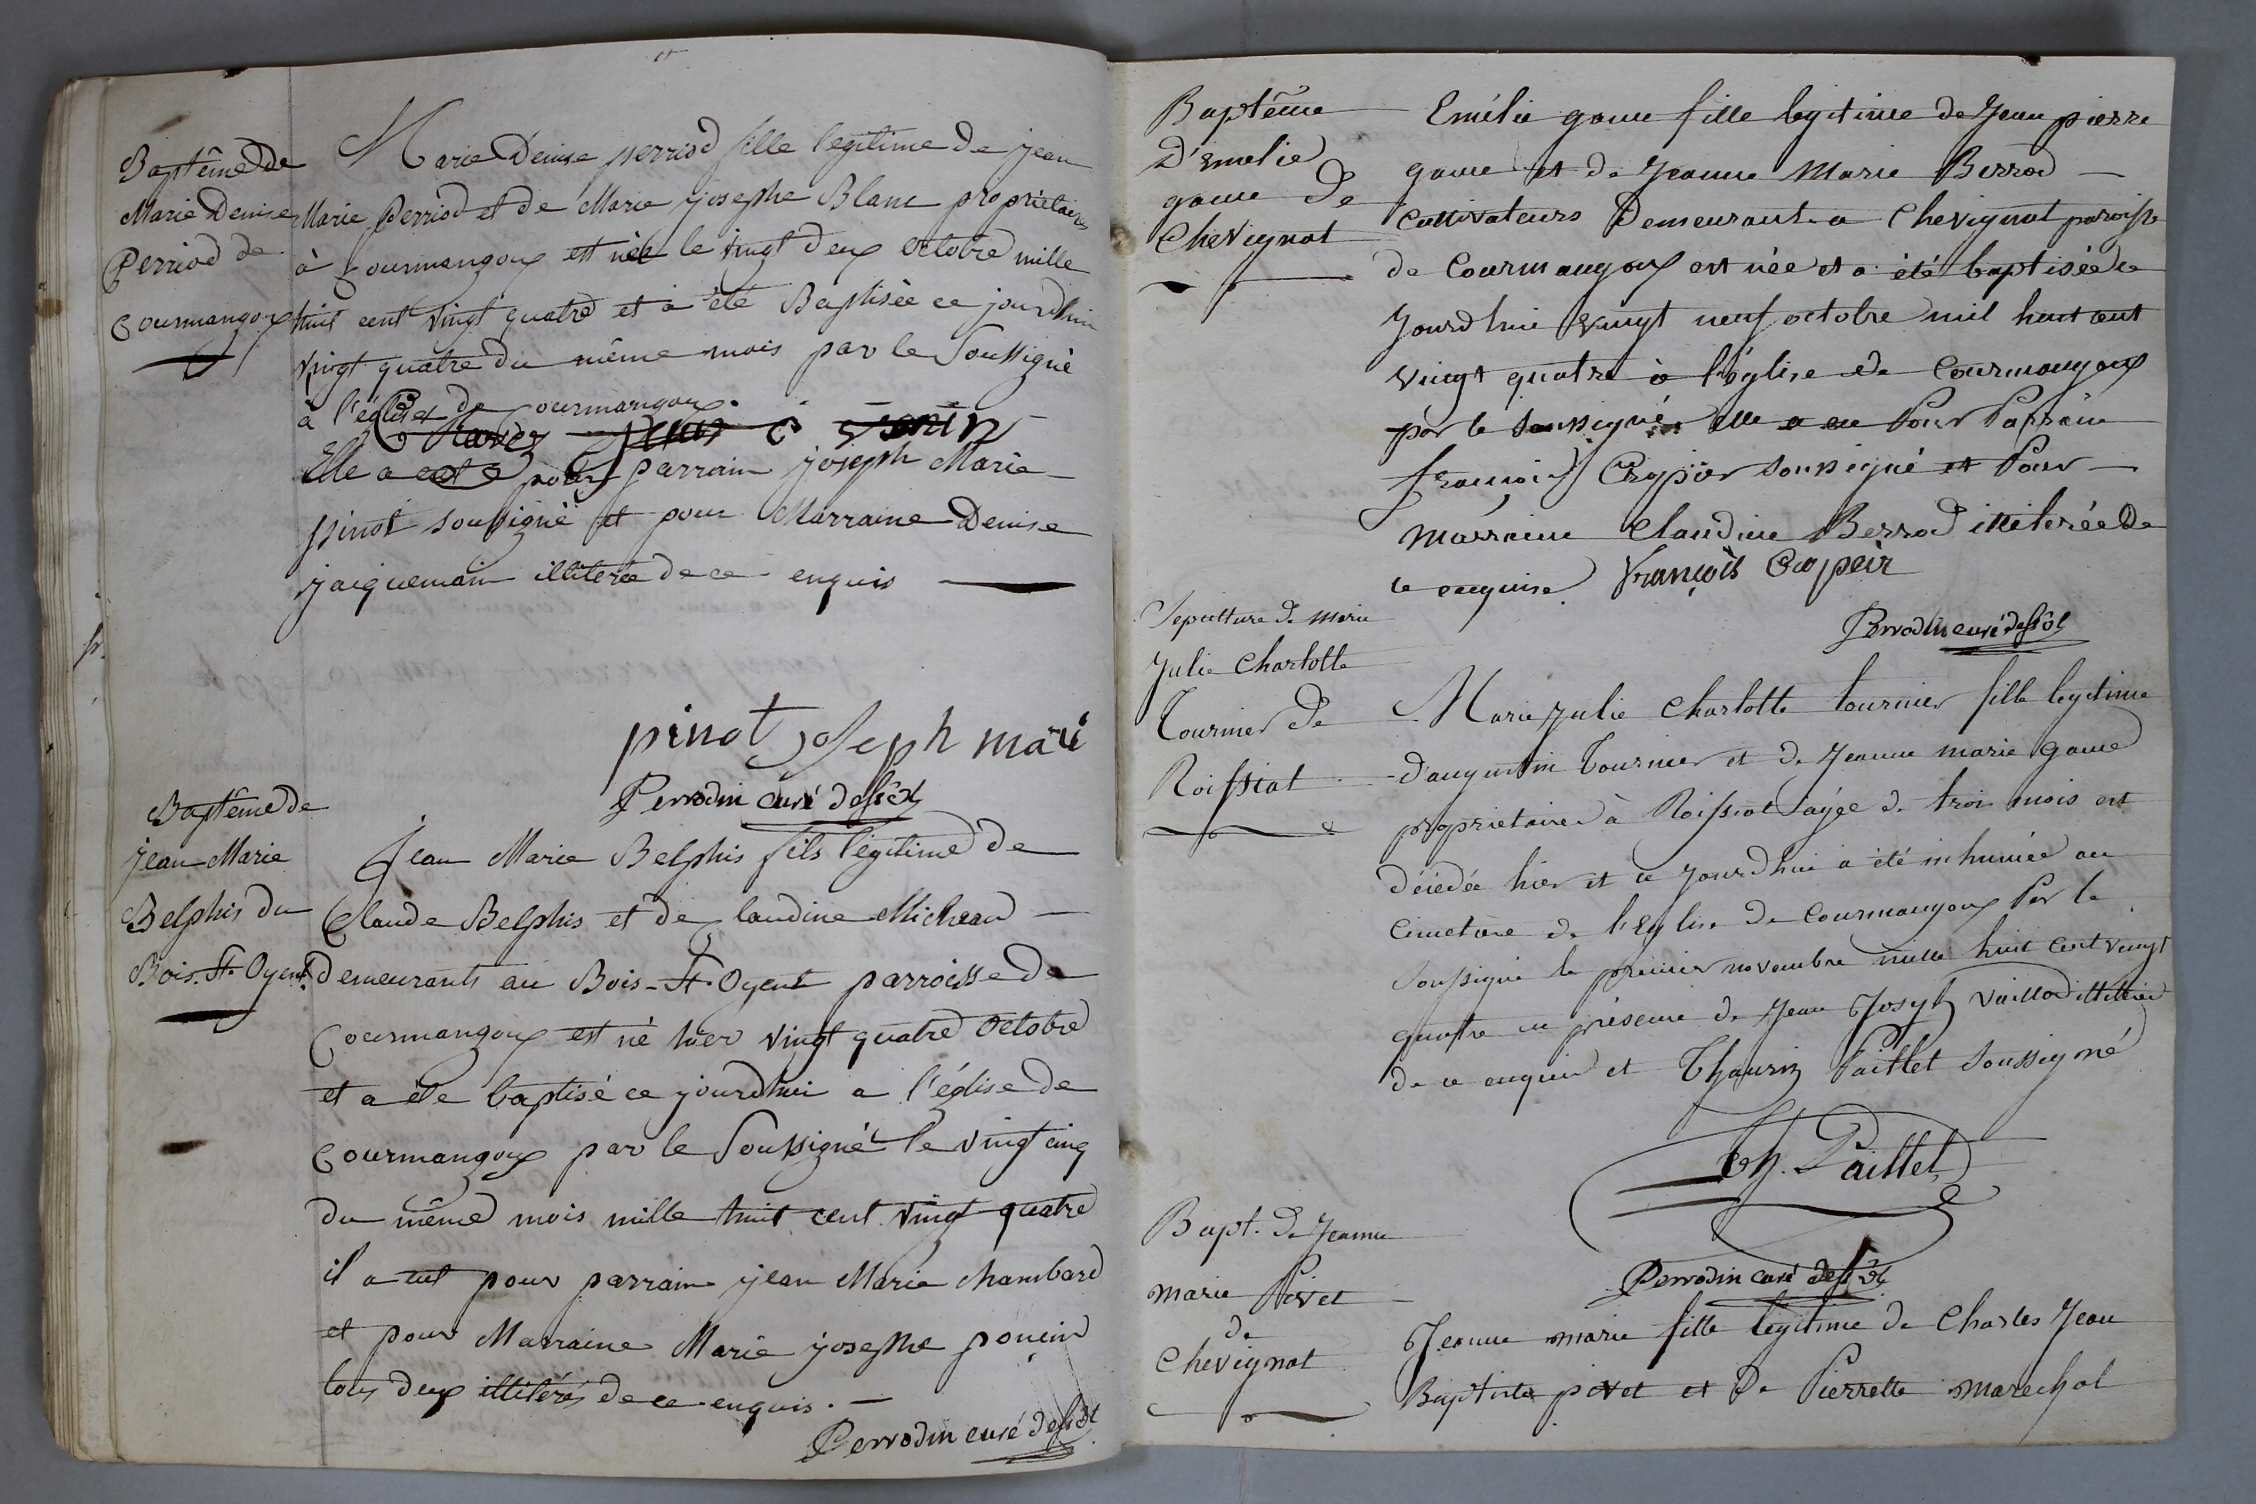 Baptême de
Marie Denise
Perriod de
Courmangoux
Marie Denise perriod fille legitime de jean
Marie Perriod et de Marie josephe Blanc proprietaires
à Courmangoux est née le vingt deux Octobre mille
huit cent vingt quatre et a été Baptisée ce jourdhui
vingt quatre du même mois par le Soussigné
à l'église de Courmangoux.
Elle a eut pour parrain joseph Marie
pinot soussigné et pour Marraine Denise
jacquemain illiterée de ce enquis
pinot joseph marie
Perrodin curé dessêt
Baptême de
jean Marie
Belphis du
Bois-St. Oyent
Jean Marie Belphis fils légitime de
Claude Belphis et de Claudine Micheau
demeurants au Bois-St. Oyent parroisse de
Courmangoux est né hier vingt quatre Octobre
et a été baptisé ce jourdhui a l'église de
Courmangoux par le Soussigné le vingt cinq
du même mois mille huit cent vingt quatre
il a eut pour parrain jean Marie chambard
et pour Marraine Marie josephe poncin
tous deux illitérés de ce enquis.
Perrodin curé dessêt
Baptême
D'Emelie
game de
Chevignat
Emélie game fille legitime de Jean pierre
game et de Jeanne Marie Berrod
Cultivateurs Demeurant a Chevignat paroisse
de Courmangoux est née et a été baptisée ce
Jourdhui vingt neuf octobre mil huit cent
vingt quatre à l'église de Courmangoux
par le soussigné elle a eu Pour Parrain
françois Cropier soussigné et Pour
Marraine Claudine Berrod illiterée De
ce enquise François Cropeir
Perrodin curé dessêt
Sepulture de Marie
Julie Charlotte
Tournier de
Roissiat
Marie Julie Charlotte tournier fille legitime
d'augustin Tournier et de Jeanne marie game
proprietaires à Roissiat agée de trois mois est
décedée hier et ce jourdhui a été inhumée au
Cimetiere de l'Eglise de Courmangoux Par le
soussigné le premier novembre mille huit cent vingt
quatre en présence de Jean Joseph Vuillod illitéré
de ce enquis et Thaurin Paillet soussigné
Th. Paillet
Perrodin curé dessêt
Bapt. de Jeanne
marie Pivet
de
Chevignat
Jeanne marie fille legitime de Charles Jean
Baptiste pivet et De Pierrette marechal